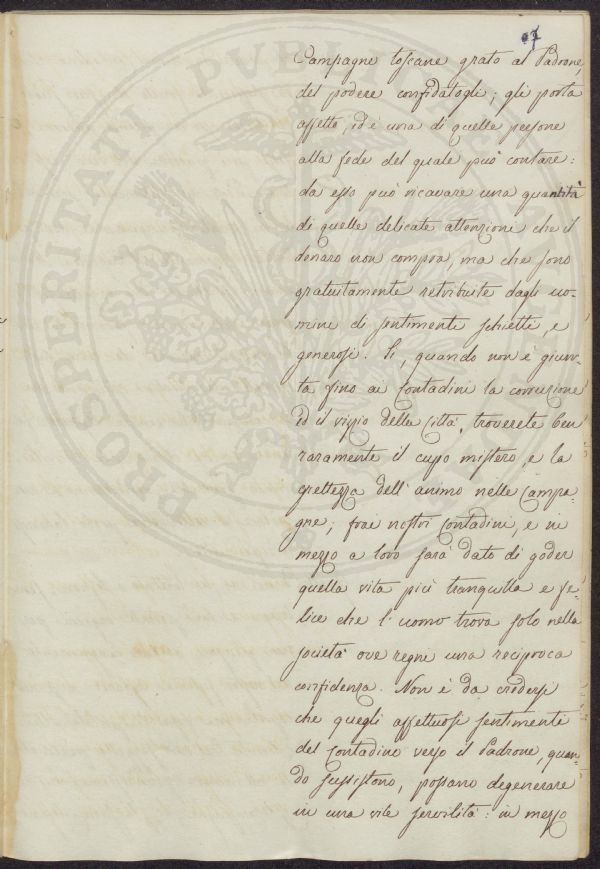 97
Campagne toscane grato al Padrone,
del podere confidatogli; gli porta
affetto, ed è una di quelle persone
alla fede del quale può contare:
da esso può ricavare una quantità
di quelle delicate attenzioni che il
denaro non compra, ma che sono
gratuitamente retribuite dagli uo-
mini di sentimenti schietti, e
generosi. Si, quando non è giun-
ta fino ai Contadini la corruzione
ed il vizzio della Città, troverete ben
raramente il cupo mistero, e la
grettezza dell'animo nelle Campa-
gne; frai nostri Contadini, e in
mezzo a loro sarà dato di goder
quella vita più tranquilla e fe-
lice che l'uomo trova solo nella
società ove regni una reciproca
confidenza. Non è da credersi
che quegli affettuosi sentimenti
del Contadino verso il Padrone, quan-
do sussistono, possano degenerare
in una vile servilità: in mezzo
PROSPERITATI PVBLICAE